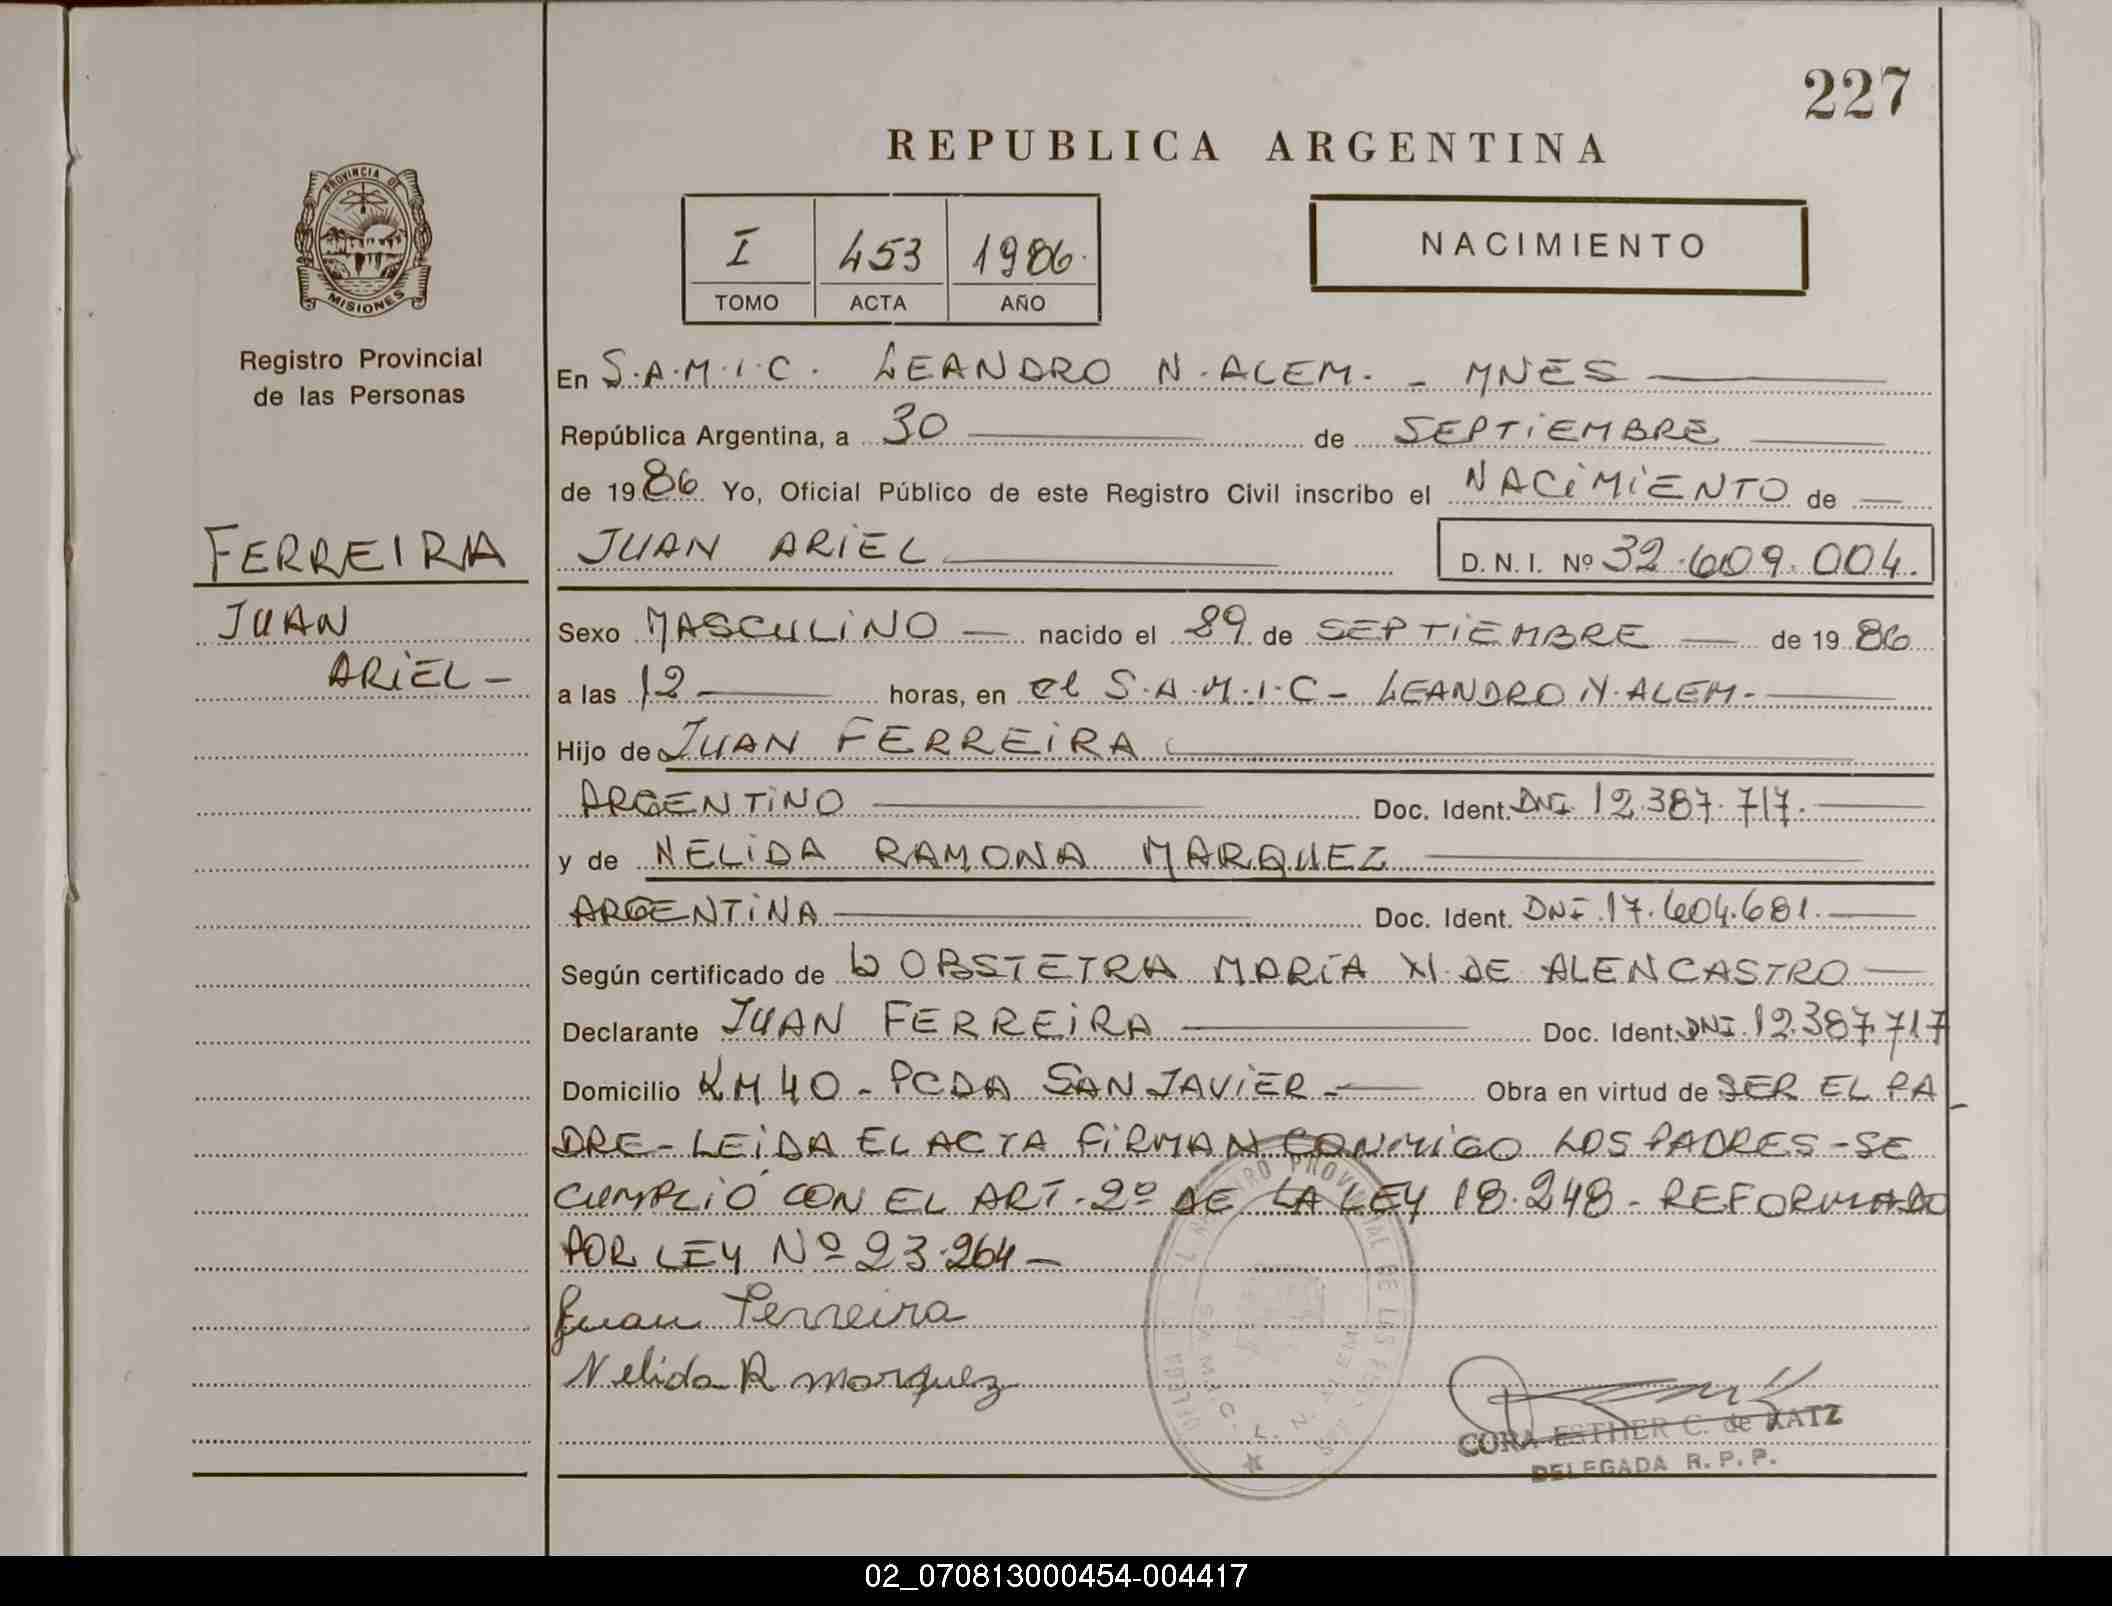 227
REPUBLICA ARGENTINA
PROVINCIA DE
MISIONES
Registro Provincial
de las Personas
I 453 1986.
TOMO ACTA AÑO
NACIMIENTO
En S.A.M.I.C. LEANDRO N. ALEM. - MNES
República Argentina, a 30 de SEPTIEMBRE
de 1986 Yo, Oficial Público de este Registro Civil inscribo el NACIMIENTO de
FERREIRA
JUAN ARIEL D. N. I. Nº 32.609.004.
JUAN
Sexo MASCULINO nacido el 29 de SEPTIEMBRE de 1986
ARIEL -
a las 12 horas, en el S.A.M.I.C - LEANDRO N. ALEM.
Hijo de JUAN FERREIRA
ARGENTINO Doc. Ident. DNI 12.387.717.
y de NELIDA RAMONA MARQUEZ
ARGENTINA Doc. Ident. DNI 17.604.681.
Según certificado de OBSTETRA MARIA DE ALENCASTRO
Declarante JUAN FERREIRA Doc. Ident. DNI. 12.387.717
Domicilio KM 40 - PCDA SAN JAVIER - Obra en virtud de SER EL PA
DRE - LEIDA EL ACTA FIRMAN CONMIGO LOS PADRES - SE
CUMPLIÓ CON EL ART. 2º DE LA LEY 18.248 - REFORMADO
POR LEY Nº 23.264 -
Juan Ferreira
Nelida R marquez
CORA ESTHER C. de KATZ
DELEGADA R. P. P.
02_070813000454-004417